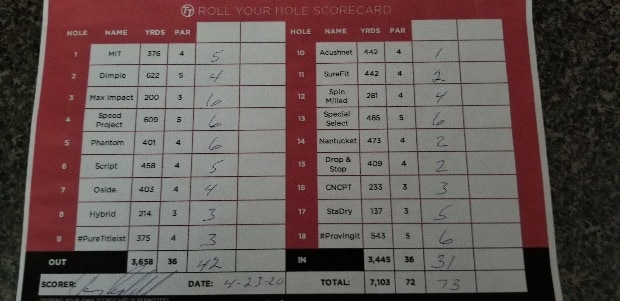 TT ROLL YOUR HOLE SCORECARD
HOLE NAME YRDS PAR HOLE NAME YRDS PAR
1 MIT 376 4 5 10 Acushnet 442 4 1
2 Dimple 622 5 4 11 SureFit 442 4 2
3 Max Impact 200 3 6 12 Spin Milled 281 4 4
4 Speed Project 609 5 6 13 Special Select 485 5 6
5 Phantom 401 4 6 14 Nantucket 473 4 2
6 Script 458 4 5 15 Drop & Stop 409 4 2
7 Oside 403 4 4 16 CNCPT 233 3 3
8 Hybrid 214 3 3 17 StaDry 137 3 5
9 #PureTitleist 375 4 3 18 #ProvingIt 543 5 6
OUT 3,658 36 42 IN 3,445 36 31
SCORER: DATE: 4-23-20 TOTAL: 7,103 72 73